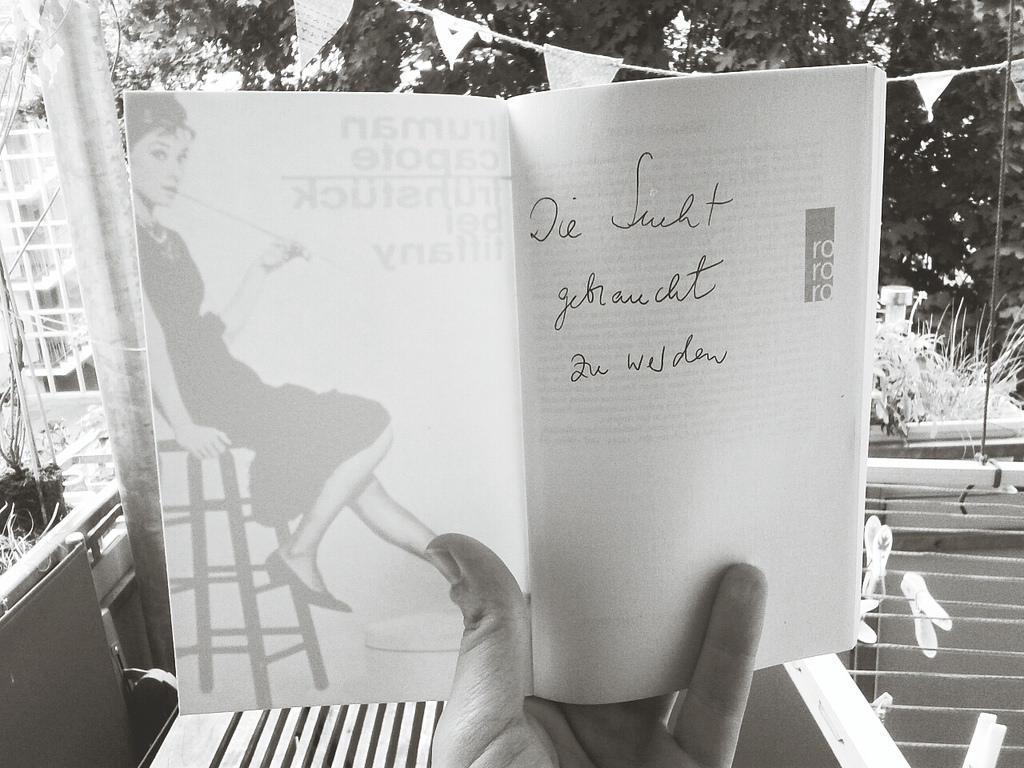 truman
capote
frühstück
bei
tiffany
Die Sucht
gebraucht
zu werden
ro
ro
ro